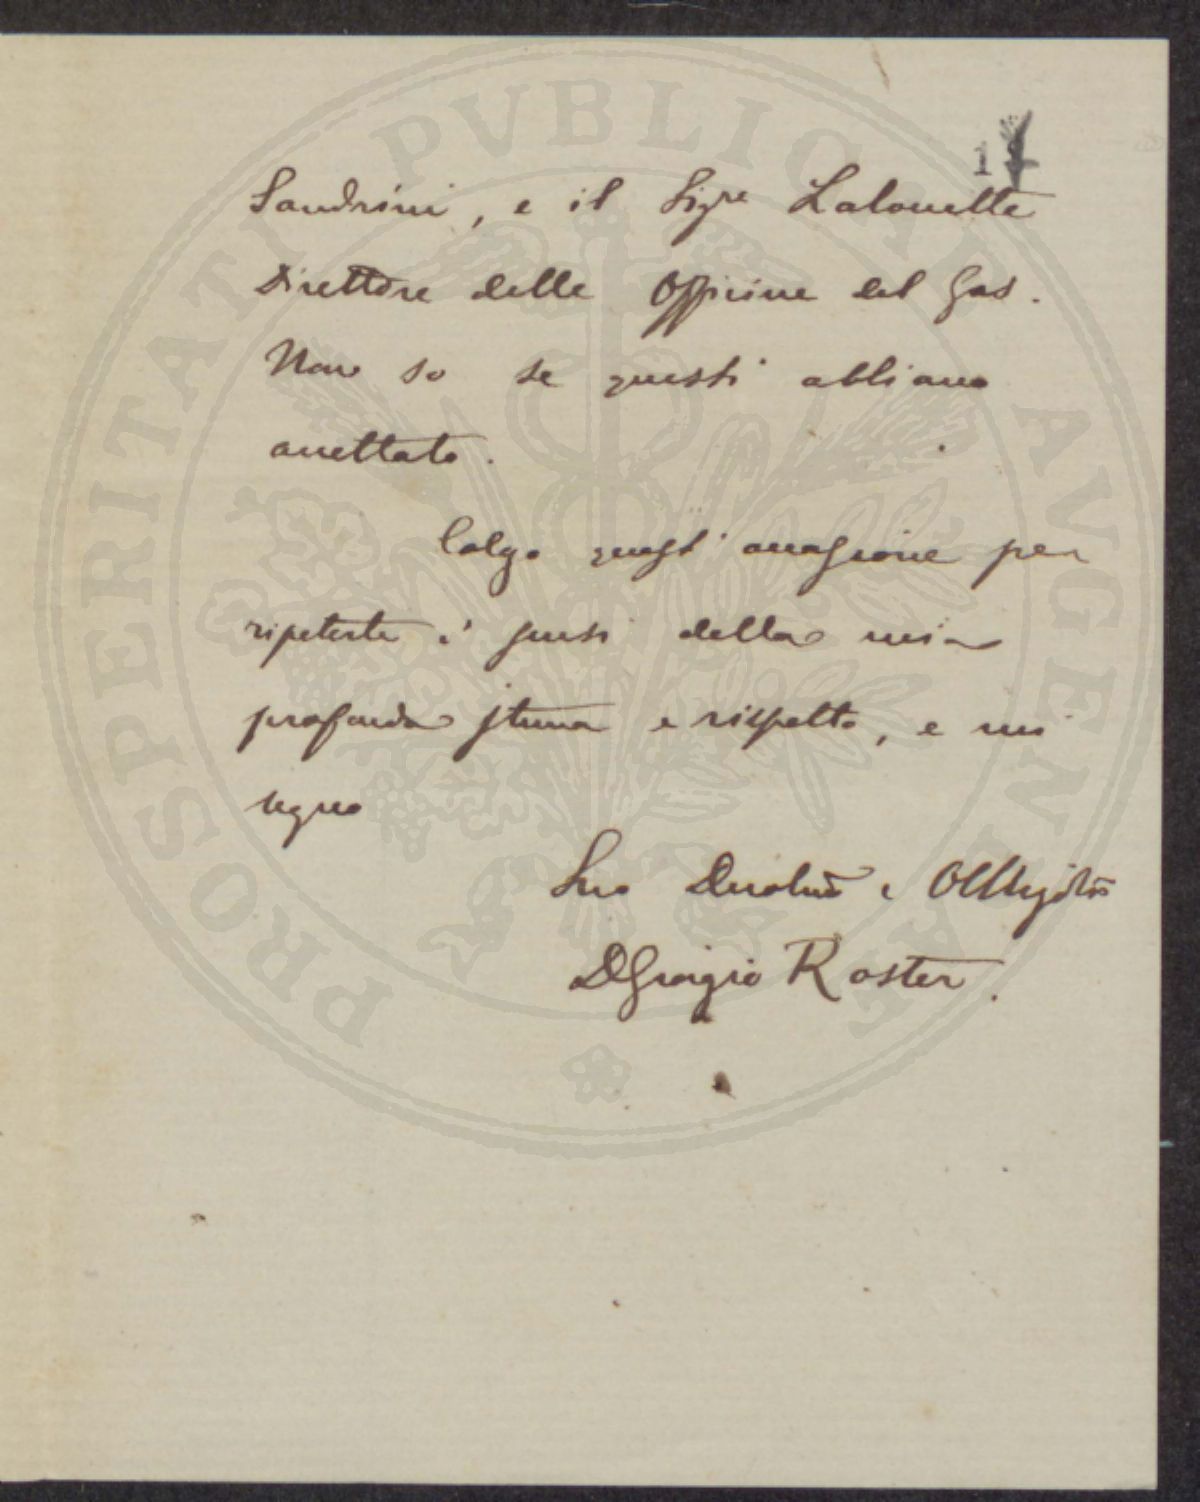 PROSPERITATI PVBLICAE AVGENDAE
1
Sandrini, e il Sigre Lalouette
Direttore delle Officine del Gas.
Non so se questi abbiano
accettato.
Colgo quest' occasione per
ripeterle i sensi della mia
profonda stima e rispetto, e mi
segno
Suo Devotmo e Obbligatmo
DGiorgio Roster.